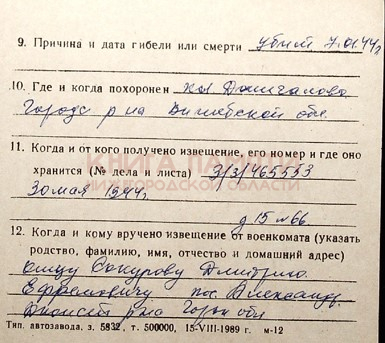 9. Причина и дата гибели или смерти убит 7.01.44г
10. Где и когда похоронен хут. Дригалово
Городс р на Витебской обл.
11. Когда и от кого получено извещение, его номер и где оно
хранится (№ дела и листа) 3/3/465553
30 мая 1944г
д 15 л 66
12. Когда и кому вручено извещение от военкомата (указать
родство, фамилию, имя, отчество и домашний адрес)
отцу Сокурову Дмитрию
Ефремовичу пос. Александр.
р на Горьк обл
Тип. автозавода, з. 5832, т. 500000, 15-VIII-1989 г. м-12
КНИГА ПАМЯТИ
НИЖЕГОРОДСКОЙ ОБЛАСТИ